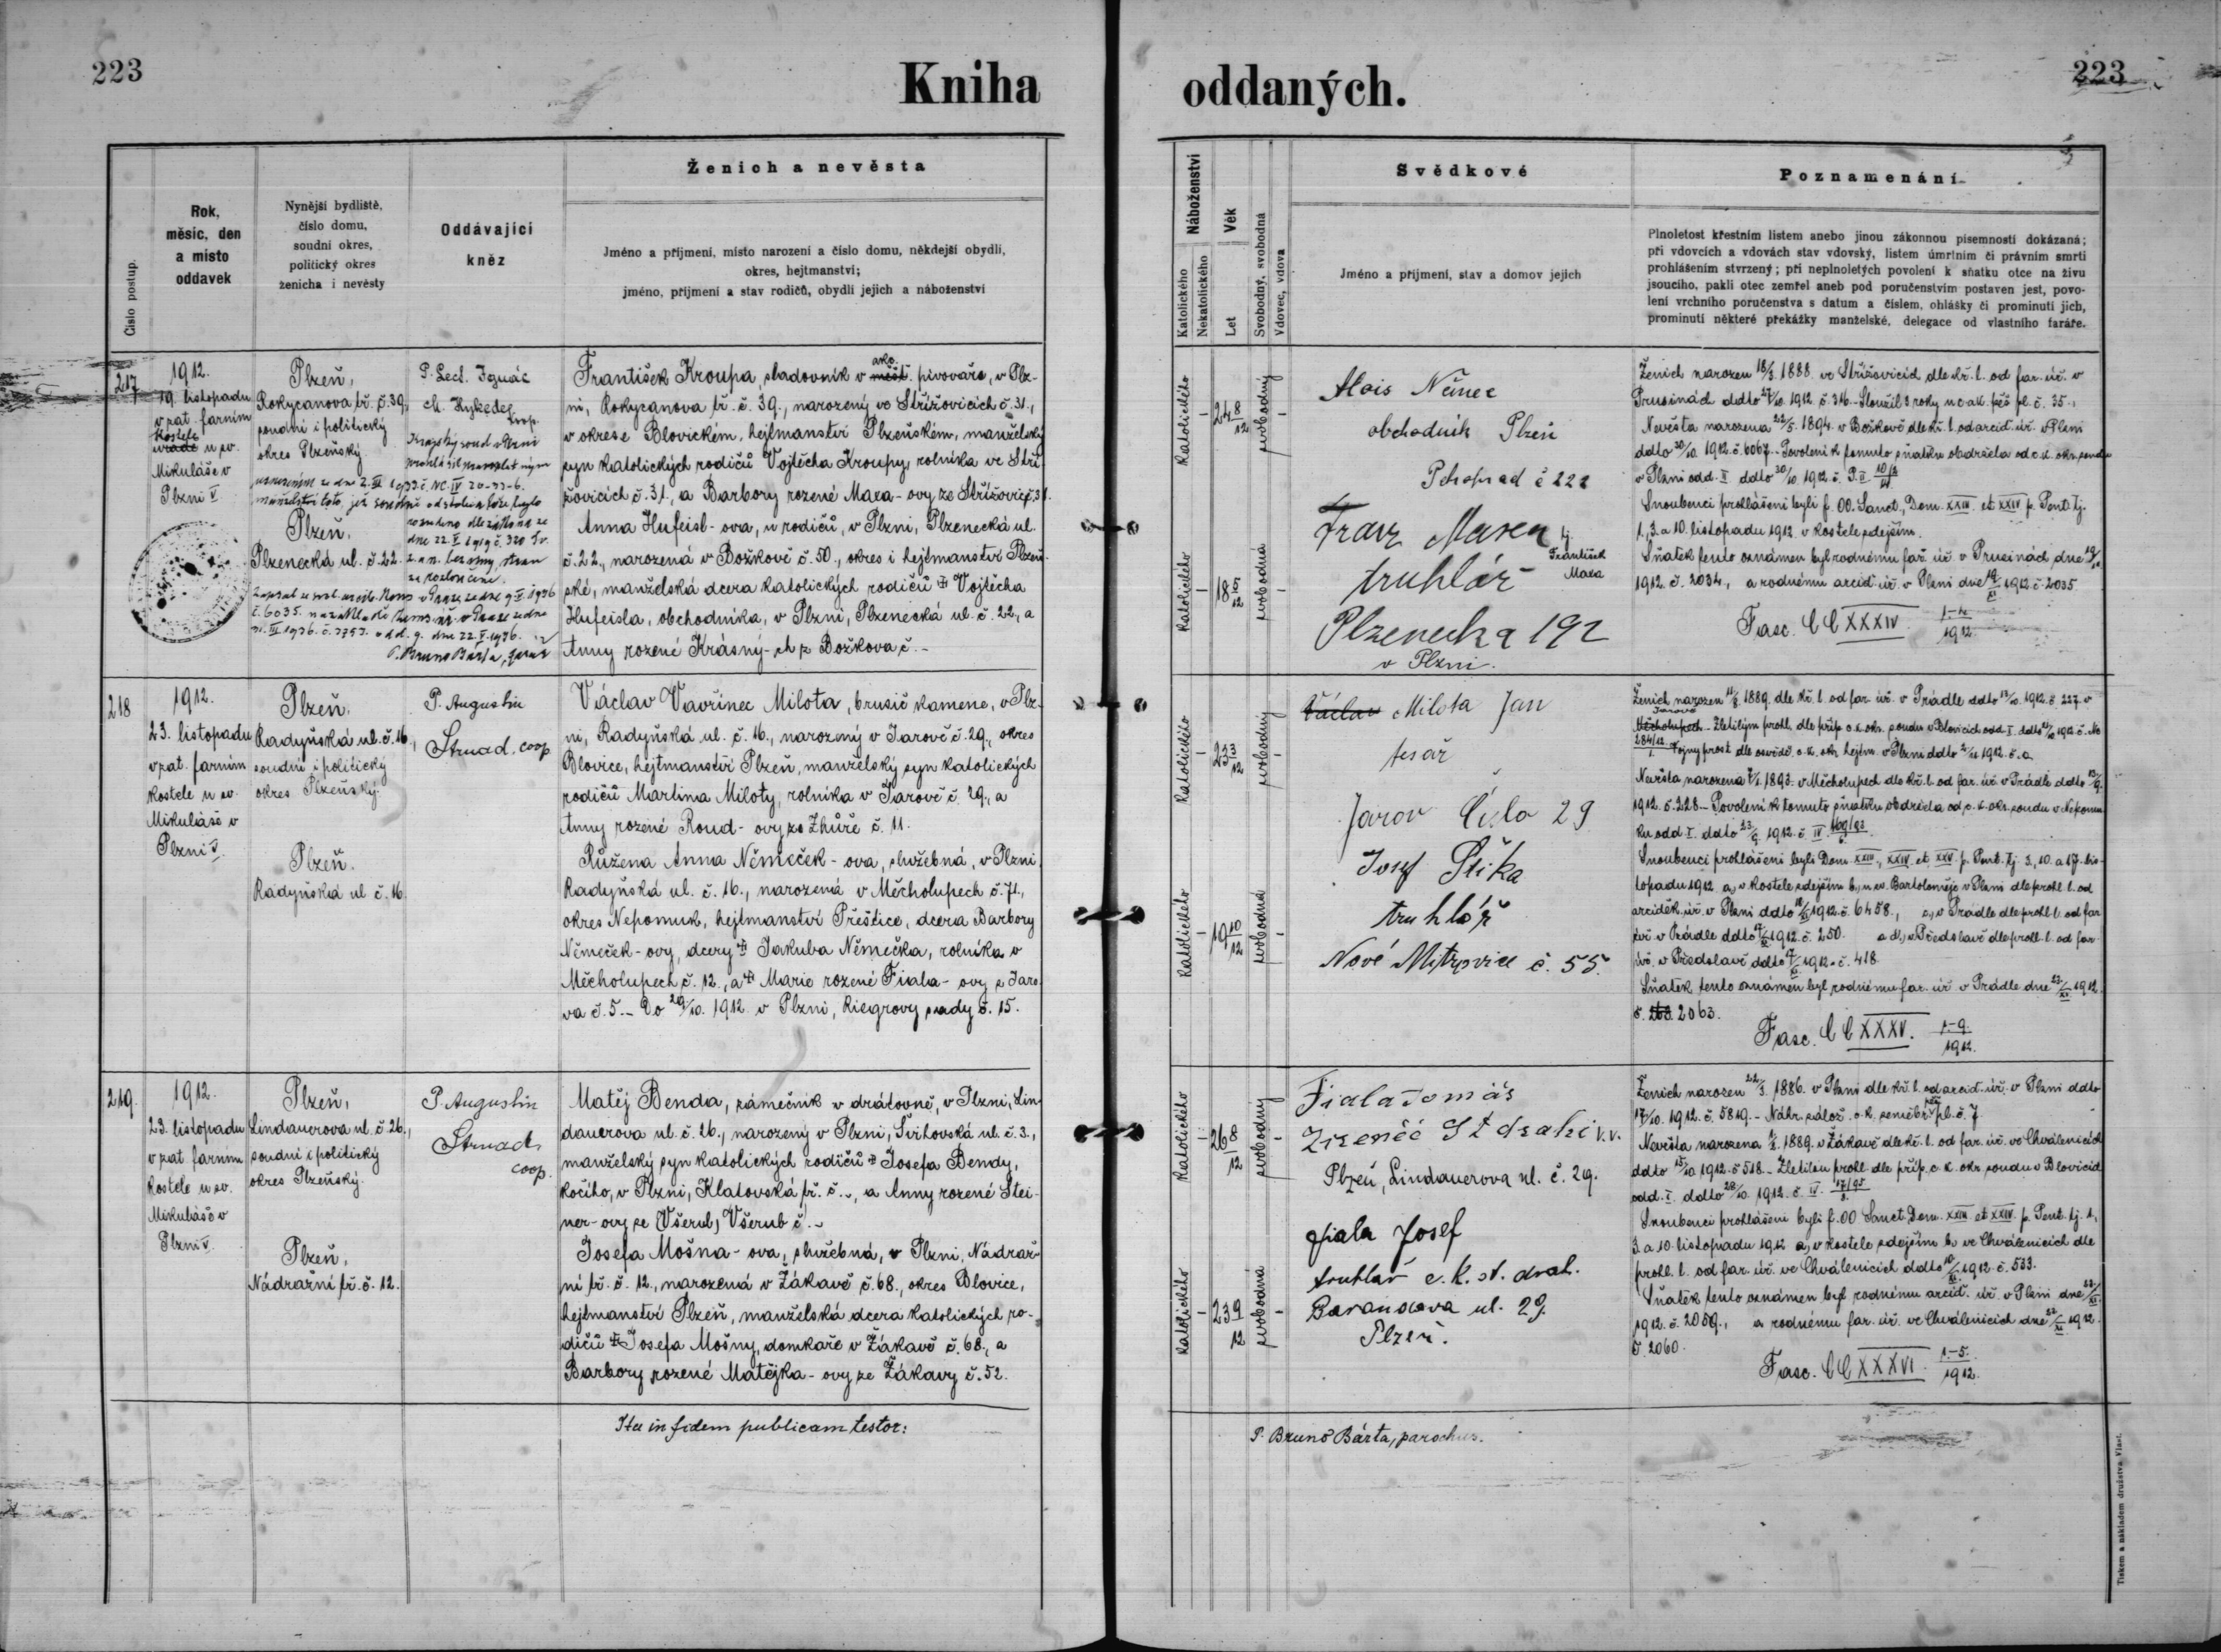 223
Kniha
oddaných.
223
Číslo postup.
Rok,
měsíc, den
a místo
oddavek
Nynější bydliště,
číslo domu,
soudní okres,
politický okres
ženicha i nevěsty
Oddávající
kněz
Ženich a nevěsta
Jméno a příjmení, místo narození a číslo domu, někdejší obydlí,
okres, hejtmanství;
jméno, příjmení a stav rodičů, obydlí jejich a náboženství
Náboženství
Katolického
Nekatolického
Věk
Let
Svobodný, svobodná
Vdovec, vdova
Svědkové
Jméno a příjmení, stav a domov jejich
Poznamenání
Plnoletost křestním listem anebo jinou zákonnou písemností dokázaná;
při vdovcích a vdovách stav vdovský, listem úmrtním či právním smrti
prohlášením stvrzený; při neplnoletých povolení k sňatku otce na živu
jsoucího, pakli otec zemřel aneb pod poručenstvím postaven jest, povo-
lení vrchního poručenstva s datum a číslem, ohlášky či prominutí jich,
prominutí některé překážky manželské, delegace od vlastního faráře.
217
1912.
19. listopadu
v pat. farním
kostele
u sv.
Mikuláše v
Plzni V
Plzeň,
Rokycanova tř. č. 39,
soudní i politický
okres Plzeňský.
Plzeň,
Plzenecká ul. č. 22.
P. Lect. Ignác
M. Hykeder
coop.
Krajský soud v Plzni
prohlásil pravoplatným
manželství toto, jež soudně od stolu a lože bylo
rozvedeno dle zákona ze
dne 22. V. 1919 č. 320 Sb.
z. a n. bez viny stran
za rozloučené.
č. 6035.
P. Bruno Bárta, farář
František Kroupa, sladovník v akc. měšť. pivovaře, v Plz-
ni, Rokycanova tř. č. 39., narozený ve Střížovicích č. 31.,
v okrese Blovickém, hejtmanství Plzeňském, manželský
syn katolických rodičů Vojtěcha Kroupy, rolníka ve Stří-
žovicích č. 31., a Barbory rozené Maxa-ovy ze Střížovic č. 31.
Anna Hufeisl-ova, u rodičů, v Plzni, Plzenecká ul.
č. 22., narozená v Božkově č. 50., okres i hejtmanství Plzeň-
ské, manželská dcera katolických rodičů Vojtěcha
Hufeisla, obchodníka, v Plzni, Plzenecká ul. č. 22, a
Anny rozené Krásný-ch z Božkova č. -
katolického
24 8/12
svobodný
katolického
18 5/12
svobodná
Alois Němec
obchodník Plzeň
Petrohrad č 222
Franz Maxa tj.
František
Maxa
truhlář
Plzenecka 192
v Plzni.
Ženich narozen 18/3. 1888. ve Střížovicích dle kř. l. od far. úř. v
Prusinách ddto 27/10. 1912. č. 316. - Sloužil 3 roky u c. a k. pěš. pl. č. 35.,
Nevěsta narozena 22/5. 1894. v Božkově dle kř. l. od arciď. úř. v Plzni
ddto 30/10. 1912. č. 6067. - Povolení k tomuto sňatku obdržela od c. k. okr. soudu
v Plzni odd. II ddto 30/10 1912. č. P. II
Snoubenci prohlášeni byli f. OO. Sanct., Dom. XXIII. et XXIV p. Pent. tj.
1., 3. a 10. listopadu 1912. v kostele zdejším.
Sňatek tento oznámen byl rodnému far. úř. v Prusinách dne 19/11.
1912. č. 2034., a rodnému arciď. úř. v Plzni dne 19/XI 1912. č. 2035
Fasc. CCXXXIV. 1-4/1912.
218
1912.
23. listopadu
v pat. farním
kostele u sv.
Mikuláše v
Plzni V.
Plzeň.
Radyňská ul. č. 16.,
soudní i politický
okres Plzeňský.
Plzeň.
Radyňská ul č. 16.
P. Augustin
Strnad, coop
Václav Vavřinec Milota, brusič kamene, v Plz-
ni, Radyňská ul. č. 16., narozený v Jarově č. 29., okres
Blovice, hejtmanství Plzeň, manželský syn katolických
rodičů Martina Miloty, rolníka v Jarově č. 29., a
Anny rozené Roud-ovy ze Zhůře č. 11.
Růžena Anna Němeček-ova, služebná, v Plzni
Radyňská ul. č. 16., narozená v Měcholupech č. 71.,
okres Nepomuk, hejtmanství Přeštice, dcera Barbory
Němeček-ovy, dcery Jakuba Němečka, rolníka v
Měcholupech č. 12., a Marie rozené Fiala-ovy z Jaro-
va č. 5. - Do 29/10. 1912. v Plzni, Riegrovy sady č. 15.
katolického
23 3/12
svobodný
katolického
19 10/12
svobodná
Václav Milota Jan
tesař
Jarov Číslo 29
Josef Štika
truhlář
Nové Mitrovice č. 55.
Ženich narozen 11/8. 1889. dle kř. l. od far. úř. v Prádle ddto 12/10. 1912. č 227. v
Jarově
Měcholupech. - Zletilým prohl. dle příp. c. k. okr. soudu v Blovicích odd. I. ddto 1912. č. Nc
284/12. Vojny prost dle osvědč. c. k. okr. hejtm. v Plzni ddto 2/11 1912. č. a
Nevěsta narozena 1893. v Měcholupech dle kř. l. od far. úř. v Prádle ddto 13/9.
1912. č. 228. - Povolení k tomuto sňatku obdržela od c. k. okr. soudu v Nepomu-
ku odd I. ddto 23/9. 1912. č. IV
Snoubenci prohlášeni byli Dom. XXIII., XXIV. et. XXV. p. Pent. tj. 3., 10. a 17. lis-
topadu 1912 a, v kostele zdejším b, u sv. Bartoloměje v Plzni dle prohl. l. od
arciděk. úř. v Plzni ddto 1912. č. 6458., c, v Prádle dle prohl. l. od far.
úř. v Prádle ddto 1912. č. 250. a d, v Předslavě dle prohl. l. od far.
úř. v Předslavě ddto 1912. č. 418
Sňatek tento oznámen byl rodnému far. úř. v Prádle dne 23/XI 1912.
č. 2063.
Fasc. CCXXXV. 1-9./1912.
219.
1912.
23. listopadu
v pat farním
kostele u sv.
Mikuláše v
Plzni V.
Plzeň,
Lindauerova ul. č. 26.,
soudní i politický
okres Plzeňský.
Plzeň,
Nádražní tř. č. 12.
P. Augustin
Strnad
coop.
Matěj Benda, zámečník v drátovně, v Plzni, Lin-
dauerova ul. č. 26., narozený v Plzni, Švihovská ul. č. 3.,
manželský syn katolických rodičů Josefa Bendy,
kočího, v Plzni, Klatovská tř. č. -, a Anny rozené Stei-
ner-ovy ze (Všerub) Všerub č. -
Josefa Mošna-ova, služebná, v Plzni, Nádraž-
ní tř. č. 12., narozená v Žákavě č. 68., okres Blovice,
hejtmanství Plzeň, manželská dcera katolických ro-
dičů Josefa Mošny, domkaře v Žákavě č. 68., a
Barbory rozené Matějka-ovy ze Žákavy č. 52.
katolického
26 8/12
svobodný
katolického
23 9/12
svobodná
Fiala Tomáš
Plzeň, Lindauerova ul. č. 29.
Fiala Josef
truhlář c. k. st. drah.
Barandova ul. 29.
Plzeň.
Ženich narozen 22/3. 1886. v Plzni dle kř. l. od arciď. úř. v Plzni ddto
17/10. 1912. č. 5819. - Náhr. zálož. c. k. zeměbr. pěš. pl. č. 7
Nevěsta narozena 1889. v Žákavě dle kř. l. od far. úř. ve Chválenicích
ddto 15/10 1912. č 518. - Zletilou prohl. dle příp. c. k. okr. soudu v Blovicích
odd. I. ddto 28/10. 1912. č. IV. 17/95
Snoubenci prohlášeni byli f. OO Sanct. Dom. XXIII. et XXIV. p. Pent. tj. 1.,
3. a 10. listopadu 1912 a, v kostele zdejším b, ve Chválenicích dle
prohl. l. od far. úř. ve Chválenicích ddto 1912. č. 533.
Sňatek tento oznámen byl rodnému arciď. úř. v Plzni dne 23/XI.
1912. č. 2059., a rodnému far. úř. ve Chválenicích dne 23/XI 1912.
č. 2060.
Fasc. CCXXXVI. 1-5./1912.
Ita in fidem publicam testor:
P. Bruno Bárta, parochus.
Tiskem a nákladem družstva Vlast.